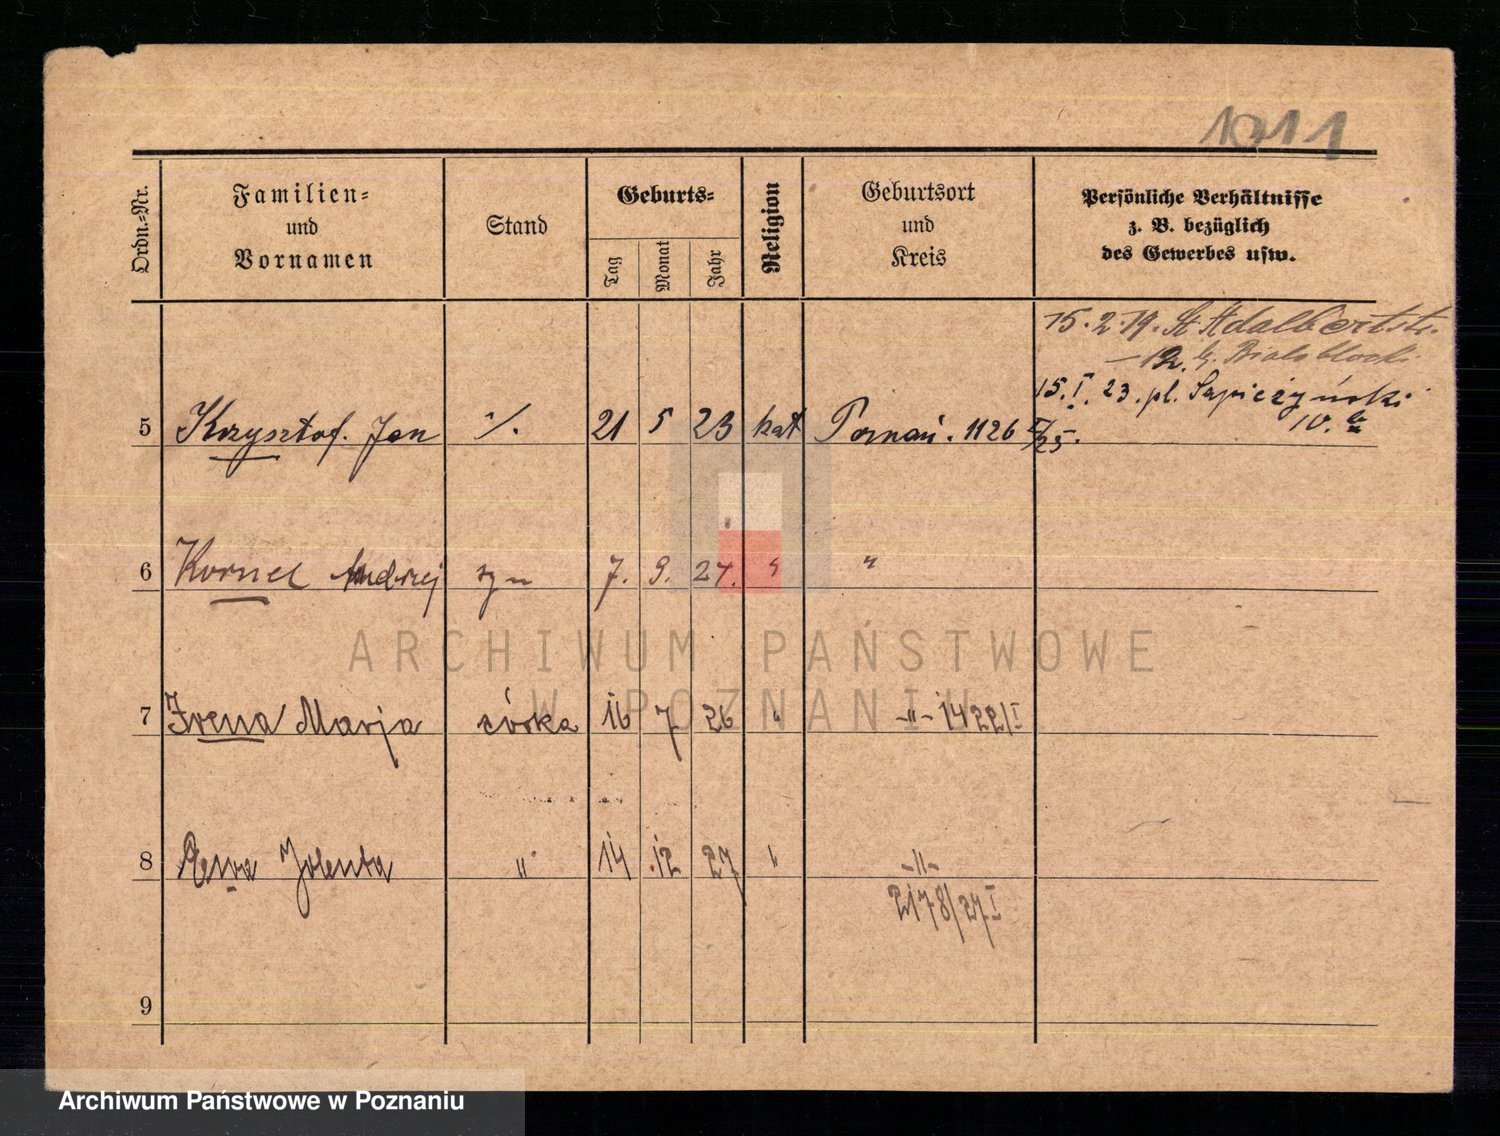 1011
Ordn.=Nr.
Familien=
und
Vornamen
Stand
Geburts=
Tag
Monat
Jahr
Religion
Geburtsort
und
Kreis
Persönliche Verhältnisse
z. B. bezüglich
des Gewerbes usw.
15.2.19. St. Adalbertstr.
15.I.23. pl. Sapieżyński
10.
5 Krzysztof. Jan ·/. 21 5 23 kat Poznań. 1126
6 Kornel Andrzej syn 7. 9. 24. " "
7 Irena Marja córka 16 7 26 " -"- 1422/I
8 Ewa Jolenta " 14 .12 27 " -"-
2178/27 I
9
ARCHIWUM PAŃSTWOWE
W POZNANIU
Archiwum Państwowe w Poznaniu